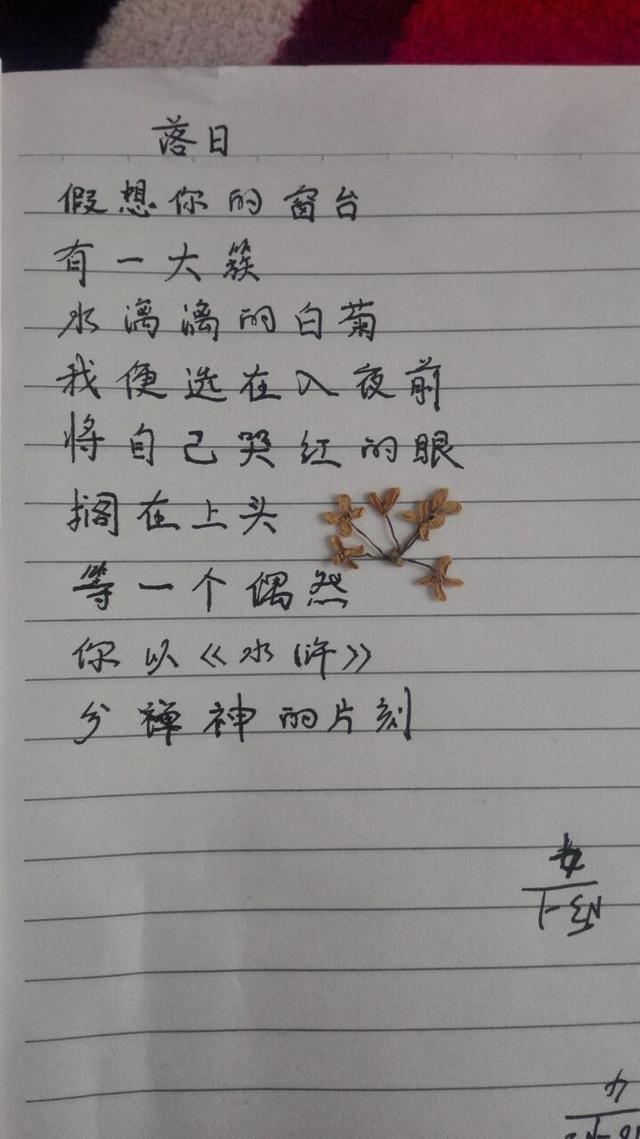 落日
假想你的窗台
有一大簇
水漓漓的白菊
我便选在入夜前
将自己哭红的眼
搁在上头
等一个偶然
你以《水浒》
分禅神的片刻